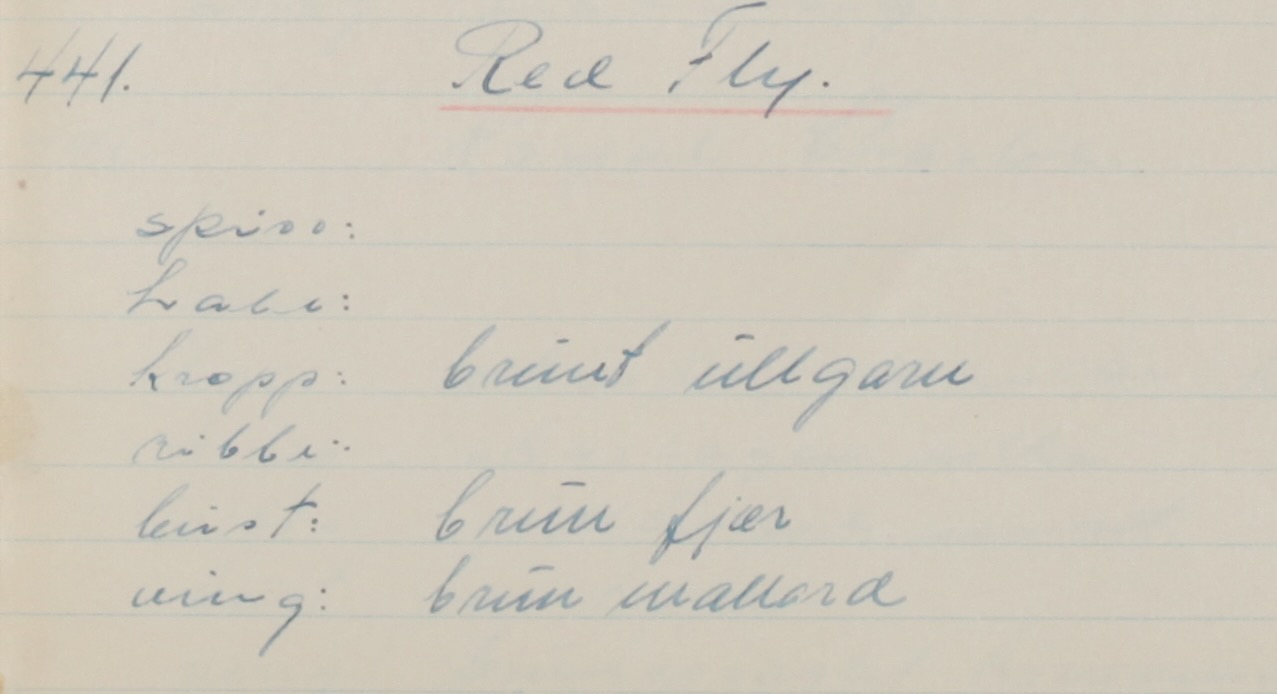 441. Red Fly.
spiss:
hale:
kropp: brunt ullgarn
ribbe:
bust: brun fjær
ving: brun mallard